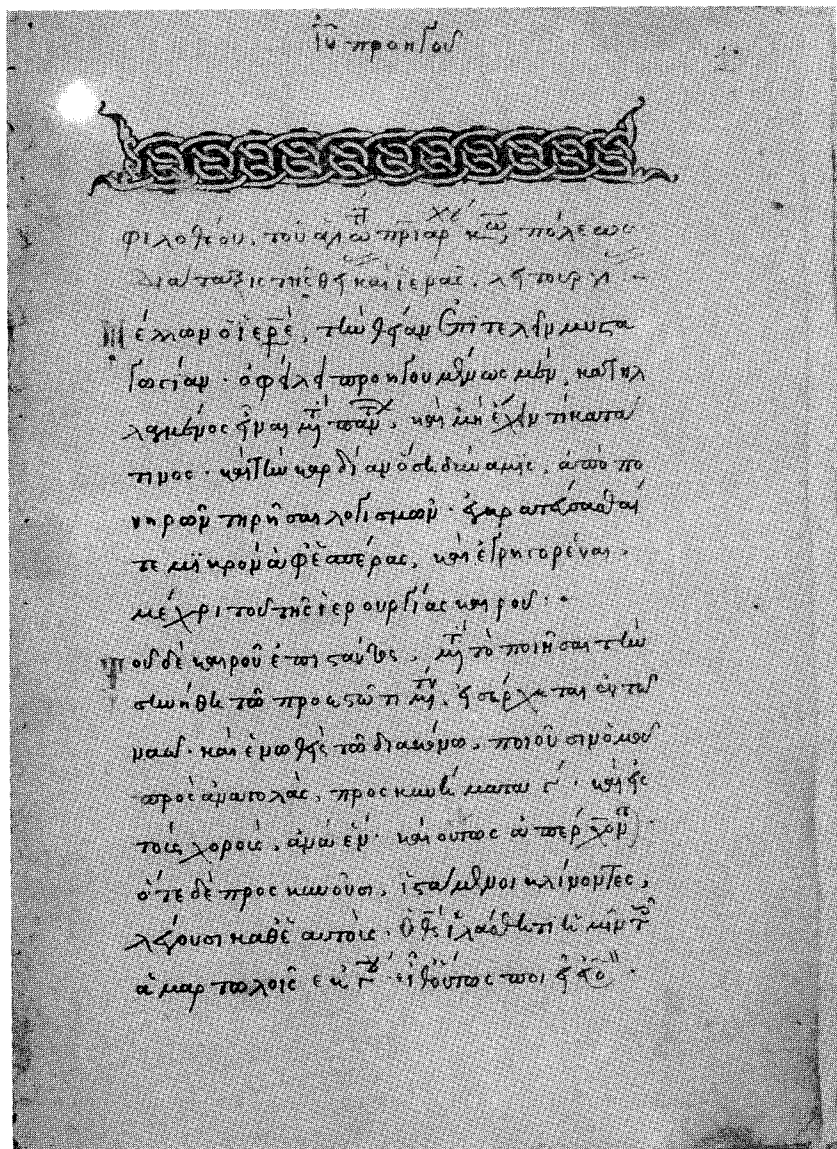 ἰῦ προηγοῦ
φιλοθέου, τοῦ ἁγιω πριαρχ κω πόλεως
διάταξις τῆς θείας καὶ ἱερᾶς, λειτουργι
έλλων ὁ ἱερεὺ, τὴν θείαν ἐπιτελεῖν μυστα
γωγίαν · ὀφείλει προηγουμένως μὲν, κατηλ
λαγμένος εἶναι μετὰ πάντ, καὶ μὴ ἔχειν τι κατα
τινος · καὶ τὴν καρδίαν ὅση δύναμις, ἀπὸ πο
νηρῶν τηρῆσαι λογισμῶν · ἐγκρατεύσασθαι
τε μικρὸν ἀφ ἑσπέρας, καὶ ἐγρηγορέναι,
μέχρι τοῦ τῆς ἱερουργίας καιροῦ ·
οῦ δὲ καιροῦ ἐπιστάντος, μετὰ τὸ ποιῆσαι τὴν
συνήθη τῶ προεστῶτι μετ, εἰσέρχεται ἐν τῶ
ναῶ · καὶ ἑνωθεὶς τῶ διακόνω, ποιοῦσιν ὁμοῦ
πρὸς ἀνατολὰς, προσκυνήματα γ · καὶ εἰς
τοὺς χοροὺς, ἀνὰ ἕν · καὶ οὕτως ἀπέρχοντ
ὅτε δὲ προσκυνοῦσι, ἱστάμενοι κλίνοντες,
λέγουσι καθ ἑαυτοὺς · ὁ θς ἱλάσθητι ἡμῖν τοῖς
ἁμαρτωλοῖς ἐκ γ · εἶθ οὕτως